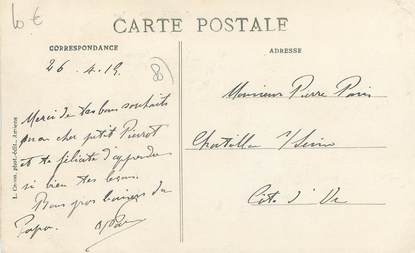 10 €
CARTE POSTALE
CORRESPONDANCE
ADRESSE
26.4.19.
Merci de tes bons souhaits
mon cher petit Pierrot
et te félicite d'apprendre
si bien tes leçons.
Bons gros baisers du
Papa.
Monsieur Pierre Paris
Chatillon s/Seine
Côte d'Or